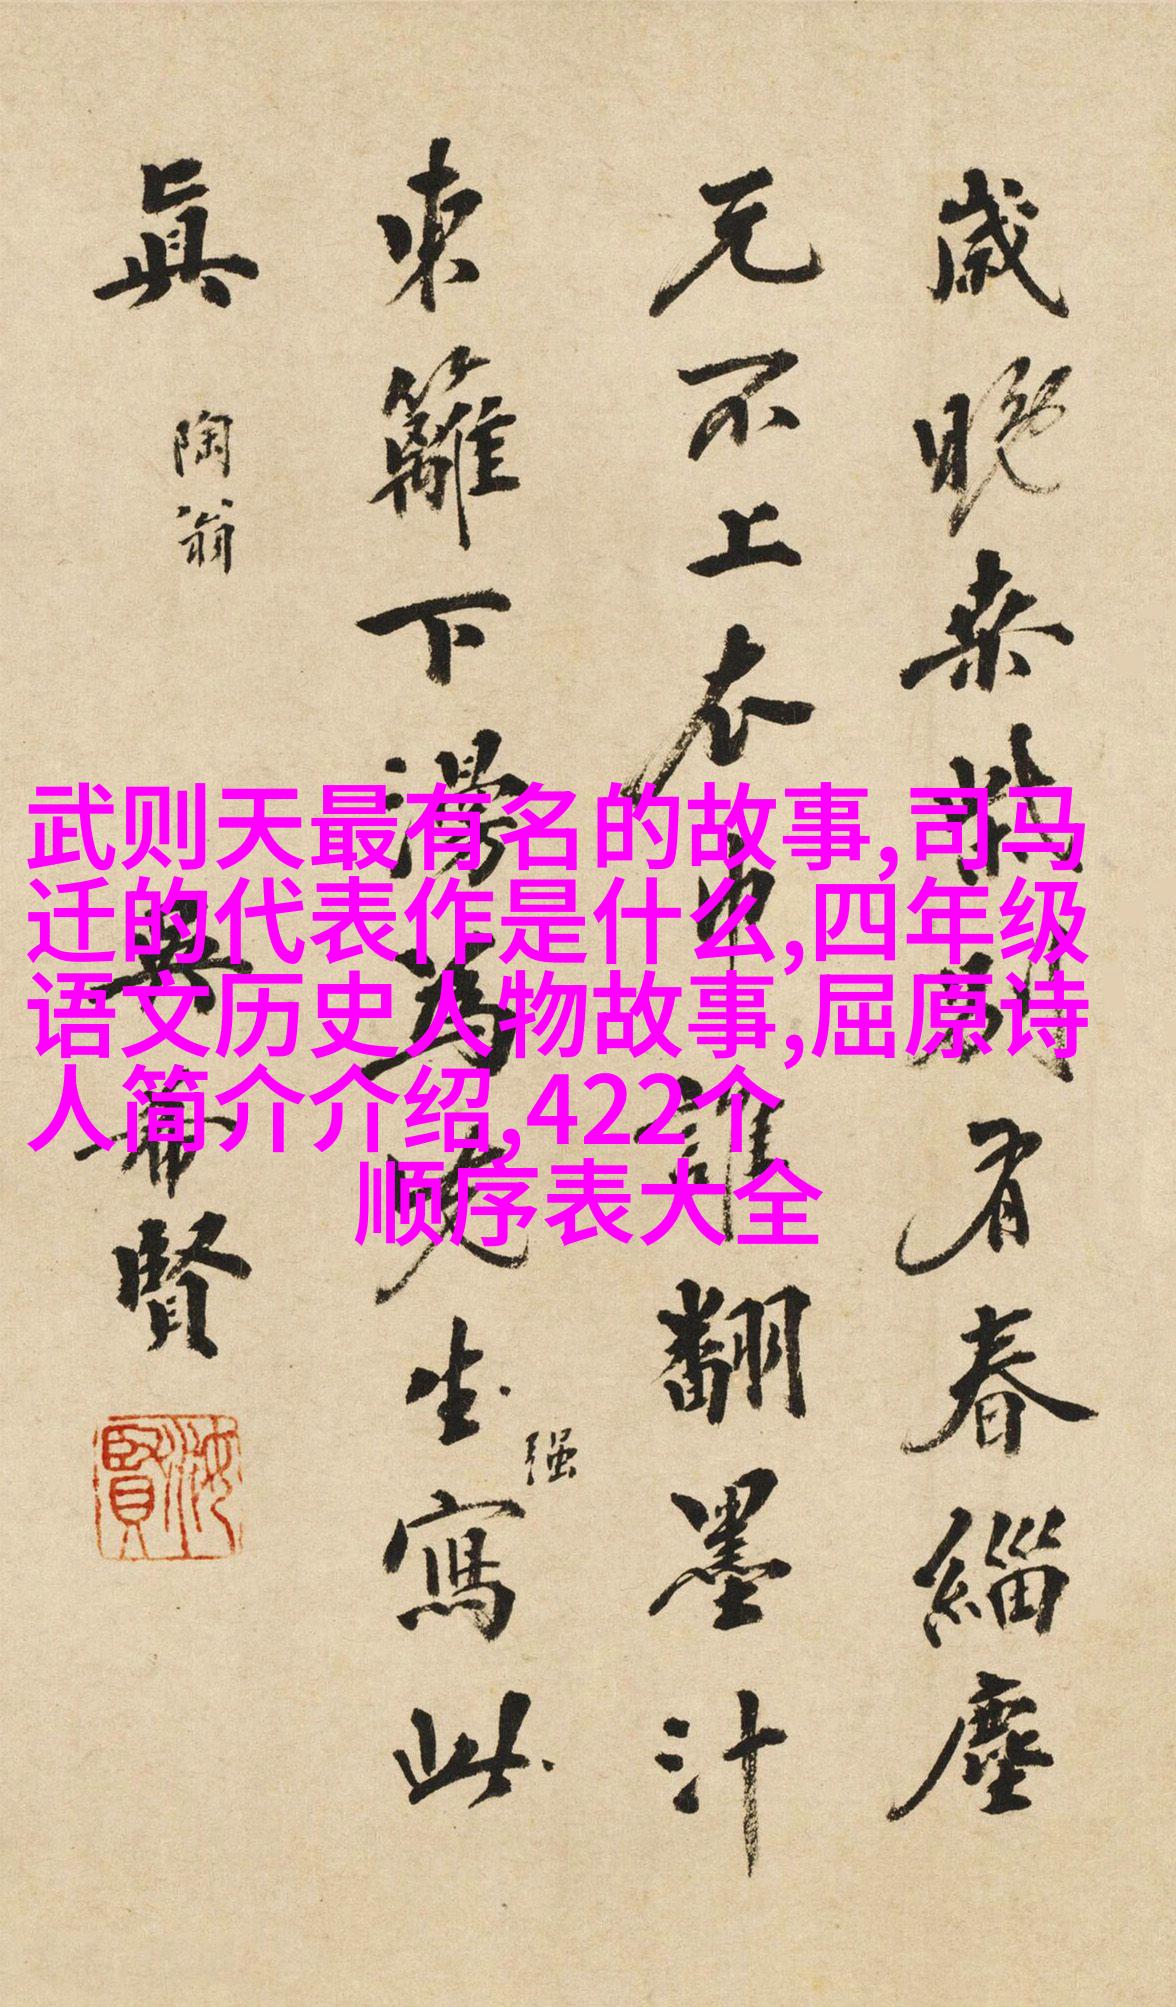 歲晚柴桑別有春緇塵
元不上衣巾誰翻墨汁
東籬下湯為先生寫此
真 陶翁
吳希賢
强
武则天最有名的故事,司马
迁的代表作是什么,四年级
语文历史人物故事,屈原诗
人简介介绍,422个
顺序表大全